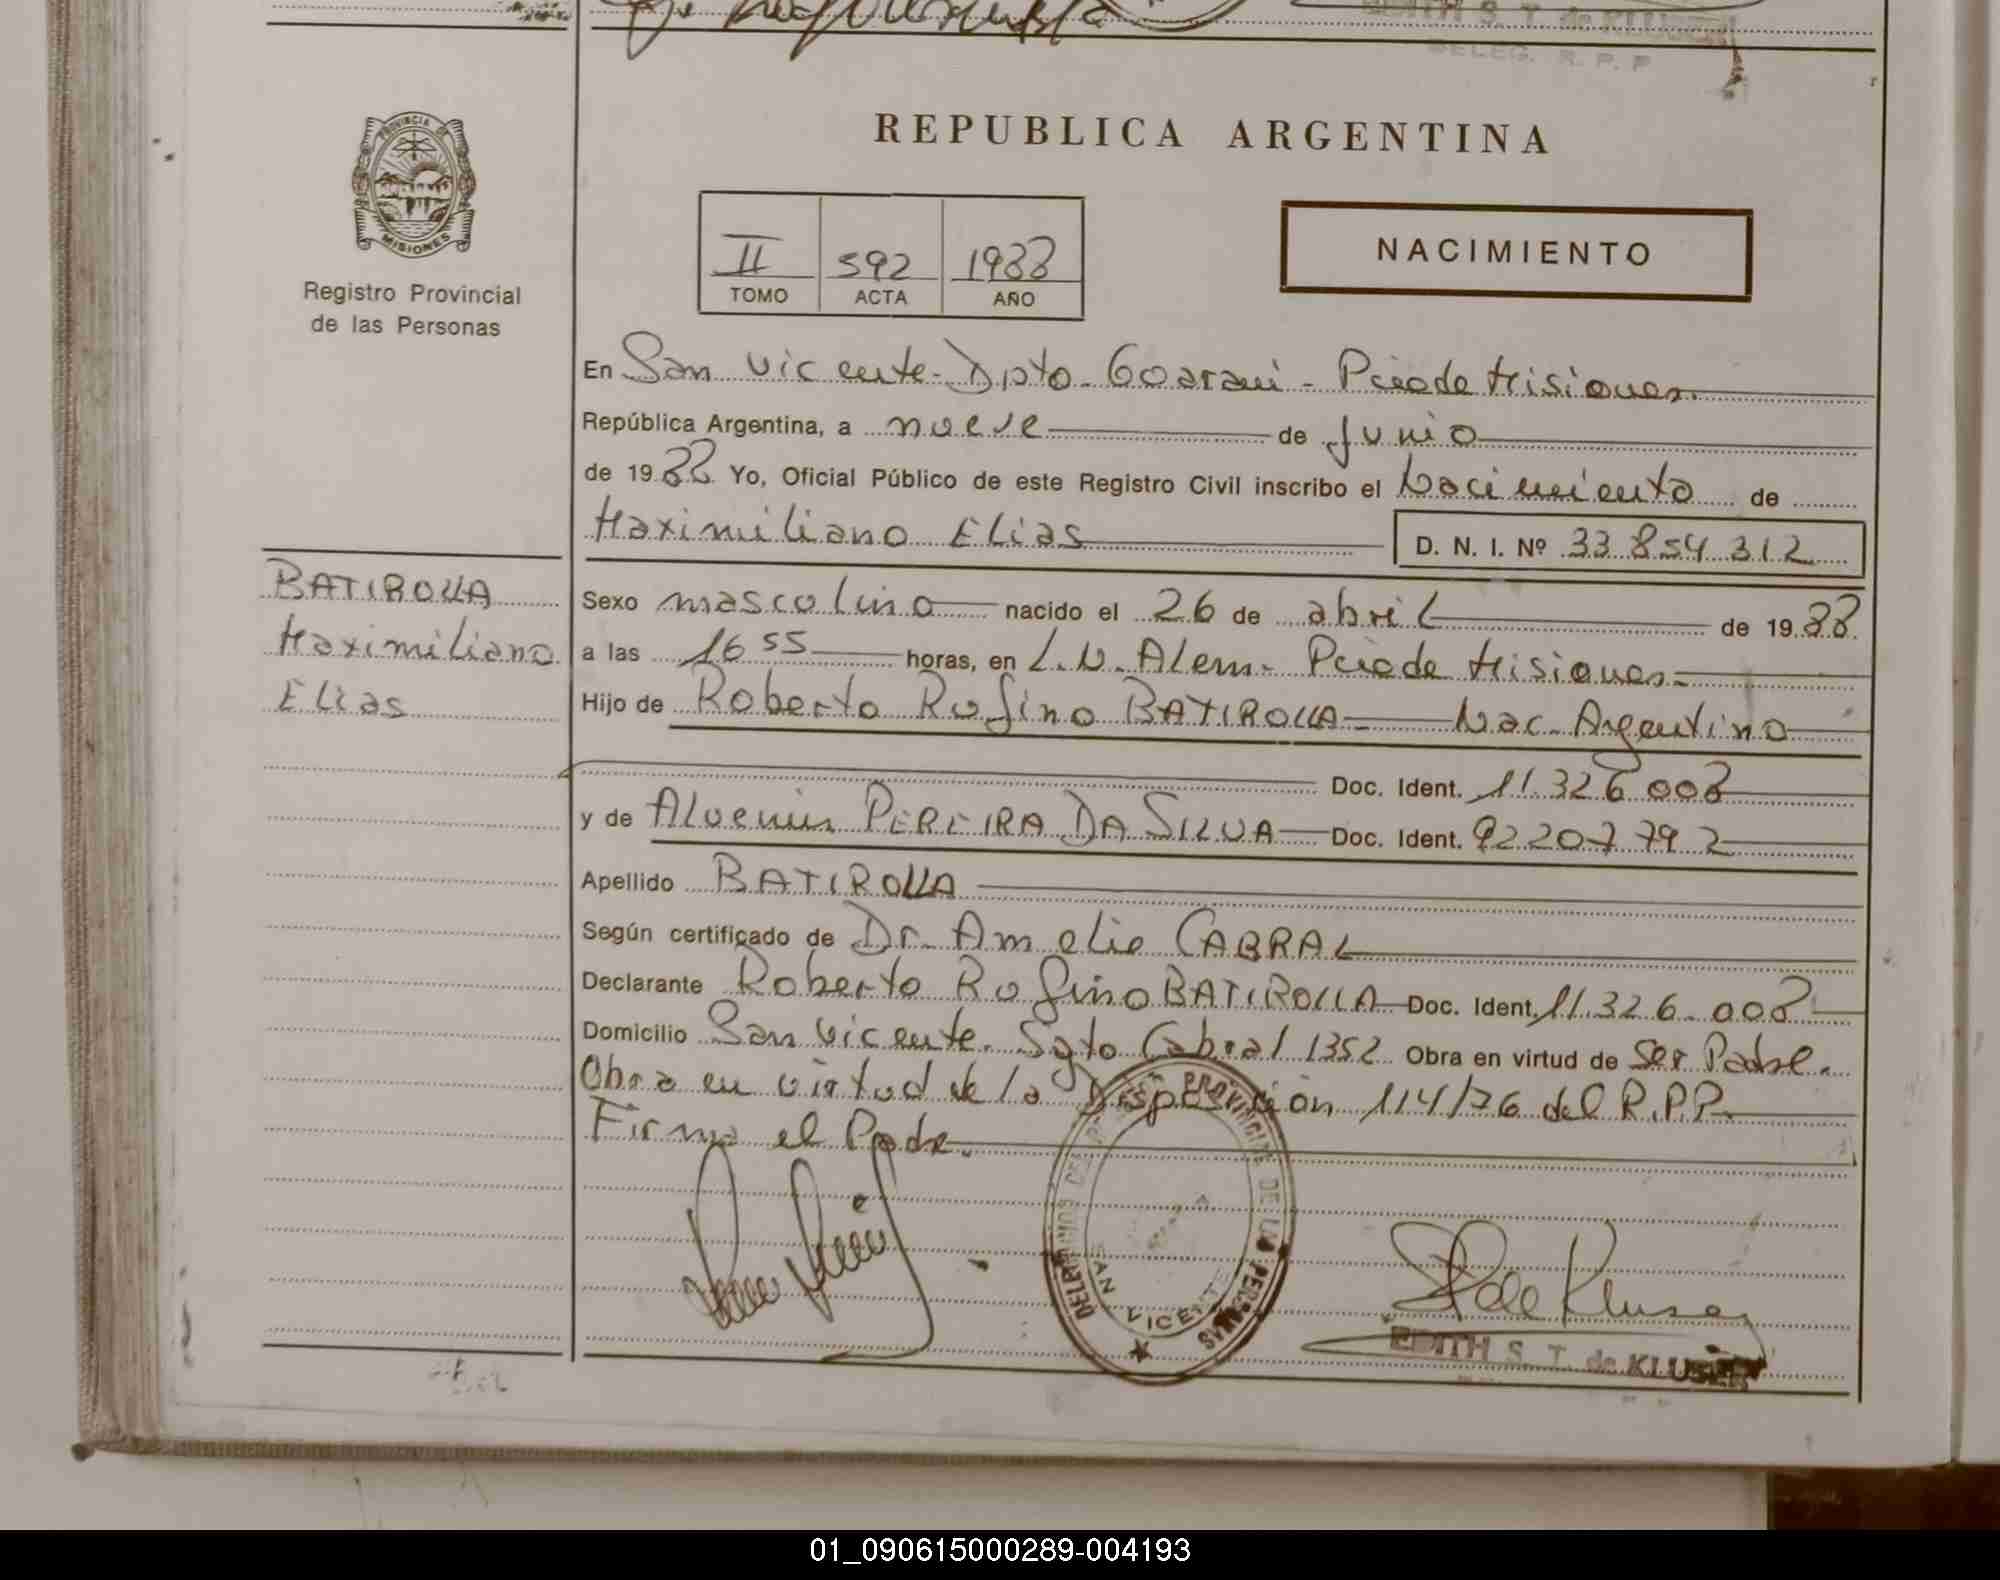 EDITH S. T. de KLUSER
DELEG. R. P. P
PROVINCIA DE
MISIONES
Registro Provincial
de las Personas
REPUBLICA ARGENTINA
II 592 1988
TOMO ACTA AÑO
NACIMIENTO
En San Vicente - Dpto - Guarani - Pcia de Misiones.
República Argentina, a nueve de Junio
de 1988 Yo, Oficial Público de este Registro Civil inscribo el Nacimiento de
Maximiliano Elias D. N. I. Nº 33 854 312
BATIROLLA
Maximiliano
Elias
Sexo masculino nacido el 26 de abril de 1988.
a las 16 55 horas, en L.N. Alem - Pcia de Misiones -
Hijo de Roberto Rufino BATIROLLA - Nac. Argentino
Doc. Ident. 11.326 008
y de PEREIRA DA SILVA Doc. Ident. 92207792
Apellido BATIROLLA
Según certificado de Dr. Amelio CABRAL
Declarante Roberto Rufino BATIROLLA Doc. Ident. 11.326.008
Domicilio San Vicente. Sgto Cabral 1352 Obra en virtud de Ser Padre.
Obra en virtud de la Disposición 114/76 del R.P.P.
Firma el Padre.
PROVINCIAL DE LAS PERSONAS
SAN VICENTE
EDITH S. T. de KLUSER
01_090615000289-004193